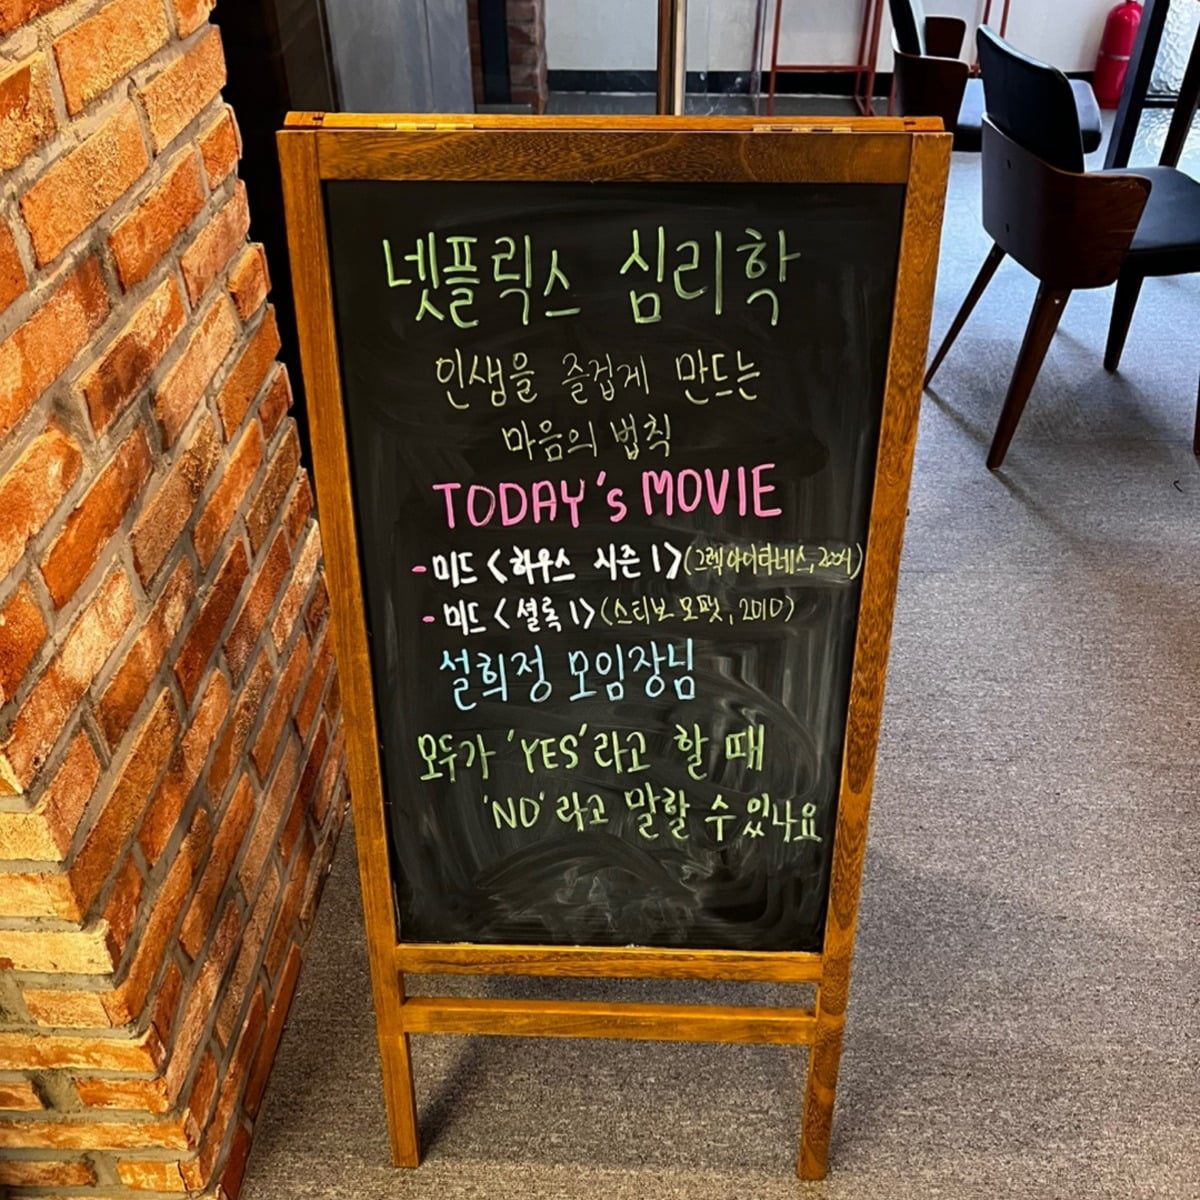 넷플릭스 심리학
인생을 즐겁게 만드는
마음의 법칙
TODAY's MOVIE
- 미드 <하우스 시즌 1> (그렉 아이타네스, 2004)
- 미드 <셜록 1> (스티브 모팻, 2010)
설희정 모임장님
모두가 'YES'라고 할 때
'NO'라고 말할 수 있나요